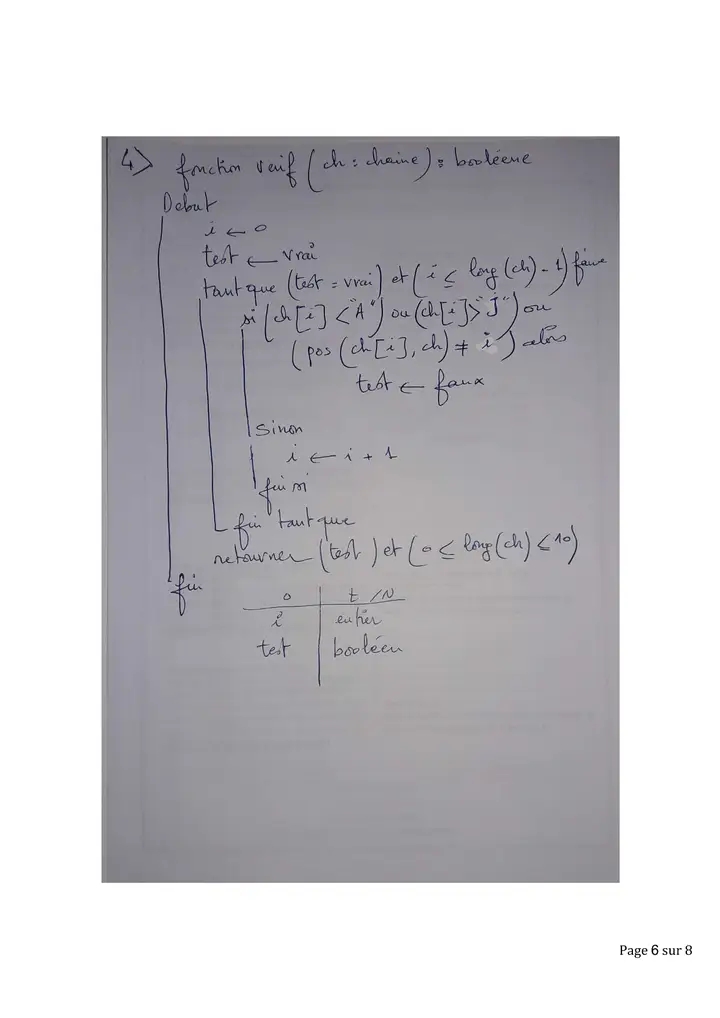 4) fonction verif (ch : chaine) : booléene
Debut
i ← 0
test ← vrai
tant que (test = vrai) et (i ≤ long (ch) - 1) faire
si (ch [i] < "A") ou (ch[i] > "J") ou
(pos (ch[i], ch) ≠ i) alors
test ← faux
Sinon
i ← i + 1
fin si
fin tant que
retourner (test) et (0 ≤ long(ch) ≤ 10)
fin
o | t / N
i | entier
test | booléen
Page 6 sur 8